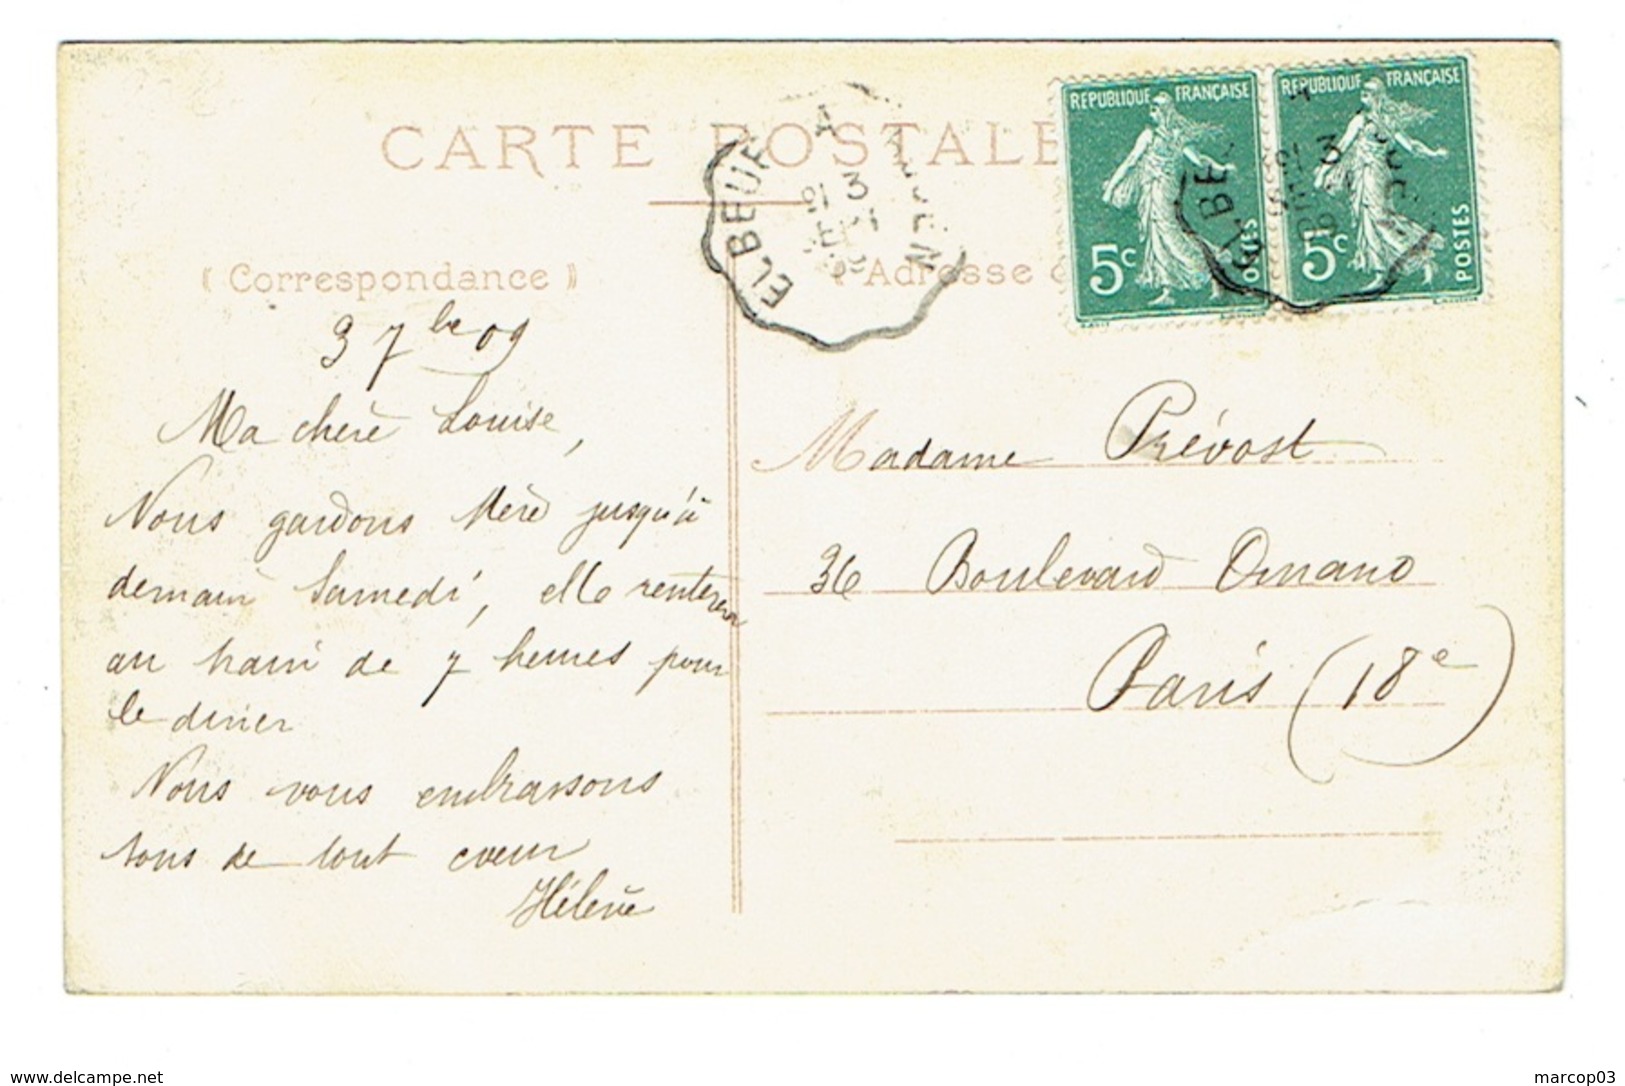 CARTE POSTALE
« Correspondance »
« Adresse
REPUBLIQUE FRANÇAISE
5c
POSTES
REPUBLIQUE FRANÇAISE
5c
POSTES
ELBEUF A
3
15
SEPT
09
ELBE
3
15
SEPT
09
3 7bre 09
Ma chère Louise,
Nous gardons Mère jusqu'à
demain Samedi, elle rentrera
au train de 7 heures pour
le diner
Nous vous embrassons
tous de tout cœur
Hélène
Madame Prévost
36 Boulevard Ornano
Paris (18e)
www.delcampe.net
marcop03